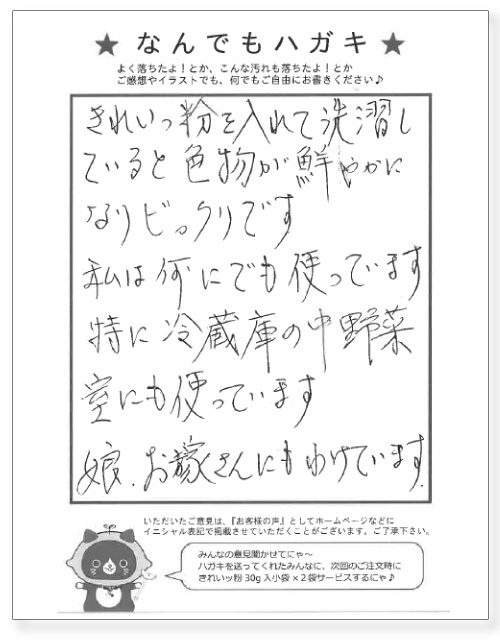 ★ なんでもハガキ ★
よく落ちたよ！とか、こんな汚れも落ちたよ！とか
ご感想やイラストでも、何でもご自由にお書きください♪
きれいっ粉を入れて洗濯し
ていると色物が鮮やかに
なりビックリです
私は何にでも使っています
特に冷蔵庫の中野菜
室にも使っています
娘.お嫁さんにもわけています.
いただいたご意見は、『お客様の声』としてホームページなどに
イニシャル表記で掲載させていただくことがございます。ご了承下さい。
みんなの意見聞かせてにゃ～
ハガキを送ってくれたみんなに、次回のご注文時に
きれいッ粉 30g 入小袋 ×２袋サービスするにゃ♪